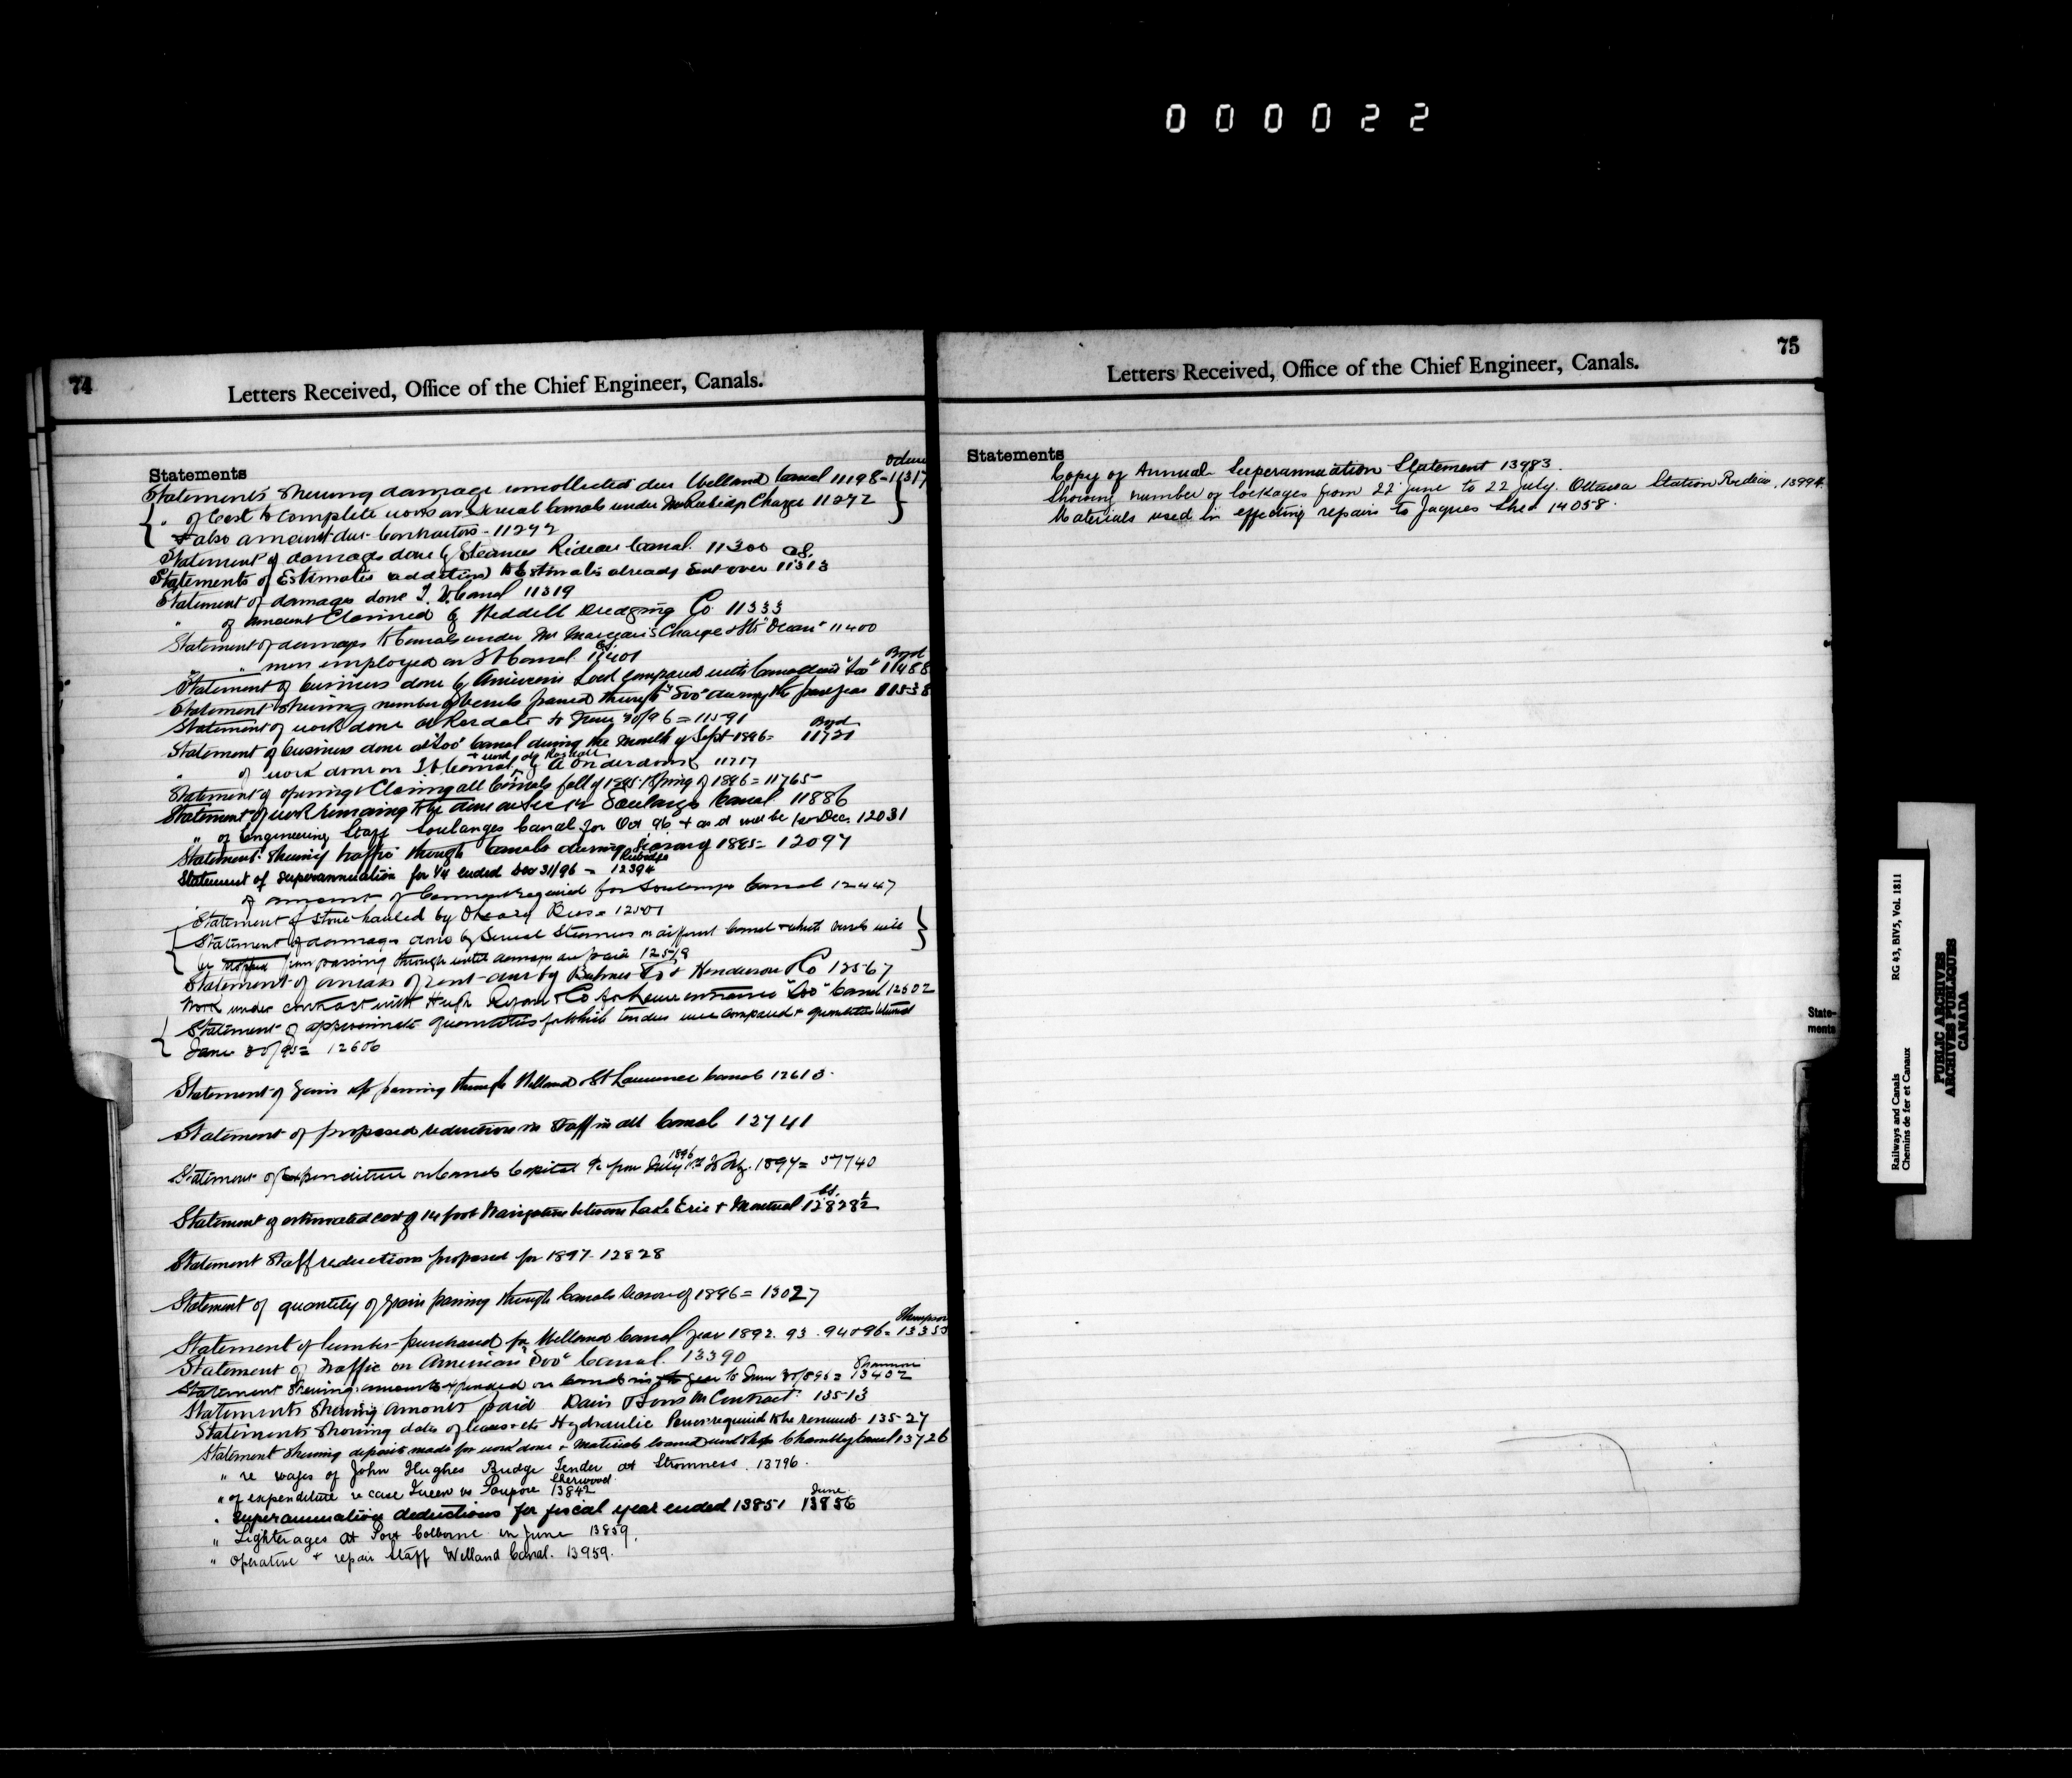 0 0 0 0 2 2
74
Letters Received, Office of the Chief Engineer, Canals.
Statements
Statements shewing damage uncollected due Welland Canal 11198-11317
" of Cost to complete work on several Canals under Mr Rubidge Charge 11242
& also amount due Contractors - 11242
Statement of damages done by Steamers Rideau Canal. 11300
Statements of Estimates addition to Estimates already sent over 11313
Statement of damages done T. V. Canal 11319
" of amount Claimed by Weddell Dredging Co. 11333
Statement of damages to Canals under Mr Marceau's Charge & Str "Ocean" 11400
" men employed on St Canal. 11401
Byrd
Statement of business done by American Lock compared with Canadian "Soo" 11488
Statement shewing number of vessels passed through "Soo" during the past year 11538
Statement of work done at Rosdale to June 30/96 = 11591
Byrd
Statement of business done at "Soo" Canal during the month of Sept 1896 = 11721
" of work done on T V Canal by A Onderdonk 11717
Statement of opening & Closing all Canals fall of 1895 & Spring of 1896 = 11765
Statement of work remaining to be done on Sec 12 Soulanges Canal 11886
" of Engineering Staff Soulanges Canal for Oct 96 + as it will be 1st Dec. 12031
Statement shewing traffic through Canals during Season of 1895 = 12097
Rubidge
Statement of superannuation for 1/4 ended Dec 31/96 - 12394
" of amount of Cement required for Soulanges Canal 12447
Statement of stone hauled by O'Leary Bros = 12501
Statement of damage done by Several Steamers on different Canal + which vessels will
be stopped from passing through until damages are paid 12519
Statement of arrears of rent due by Henderson & Co 12567
Work under contract with Hugh Ryan & Co for lower entrance "Soo" Canal 12602
Statement of approximate quantities for which tenders were compared + quantities returned
June 30/95 = 12606
Statement of Grain &c passing through Welland & St Lawrence Canals 12613.
Statement of proposed reductions in Staff in all Canal 12741
1896
Statement of Expenditure on Canals Capital &c from July 1st 1897 = 57740
Statement of estimated cost of 14 foot Navigation between Lake Erie + Montreal 12828½
Statement Staff reductions proposed for 1897 - 12828
Statement of quantity of Grain passing through Canals Season of 1896 = 13027
Thompson
Statement of lumber purchased for Welland Canal year 1892. 93. 94 & 96 = 13355
Statement of Traffic on American "Soo" Canal. 13390
Shannon
Statement Shewing amounts expended on Canals in year to June 30/896 = 13402
Statements Shewing amonts paid Davis & Sons in Contract 13513
Statements Showing dates of leases etc Hydraulic Power required to be renewed 13527
Statement Shewing deposits made for work done + Materials loaned Chambly Canal 13726
" re wages of John Hughes Bridge Tender at Stromness. 13796.
Sherwood
" of expenditure re case Queen vs Poupore 13842
June
" Superannuation deductions for fiscal year ended 13851 13856
" Lighterages at Port Colborne in June 13859.
" Operative + repair Staff Welland Canal. 13959.
75
Letters Received, Office of the Chief Engineer, Canals.
Statements
Copy of Annual Superannuation Statement 13983.
Showing number of lockages from 22 June to 22 July. Ottawa Station Rideau. 13994.
Materials used in effecting repairs to Jaques Shed 14058.
State-
ments
Railways and Canals
Chemins de fer et Canaux
RG 43, BIV5, Vol. 1811
PUBLIC ARCHIVES
ARCHIVES PUBLIQUES
CANADA